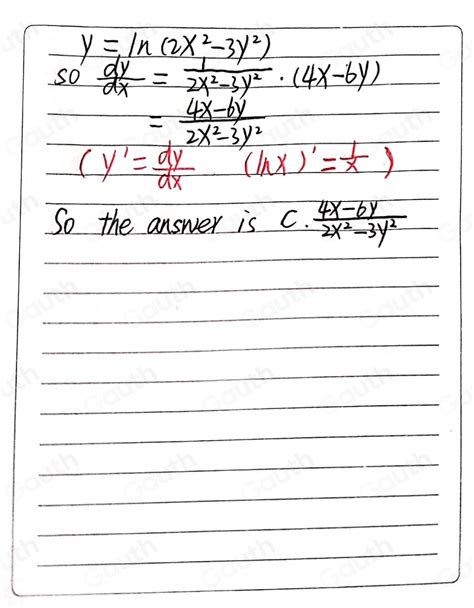 y = ln (2x²-3y²)
so dy/dx = 1/(2x²-3y²) · (4x-6y)
= (4x-6y)/(2x²-3y²)
( y' = dy/dx (ln x)' = 1/x )
So the answer is C. (4x-6y)/(2x²-3y²)
Gauth